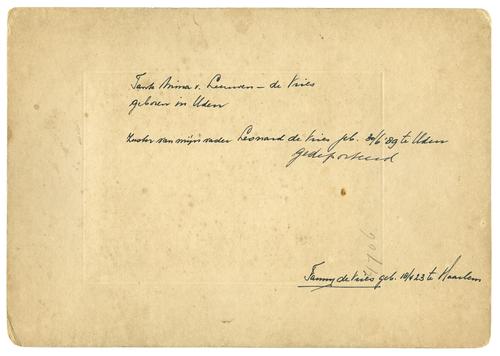 Tante Mina v. Leeuwen - de Vries
geboren in Uden
Zuster van mijn vader Leonard de Vries geb. 30/6 '89 te Uden
gedeporteerd
1706
Fanny de Vries geb. 10/4 23 te Haarlem